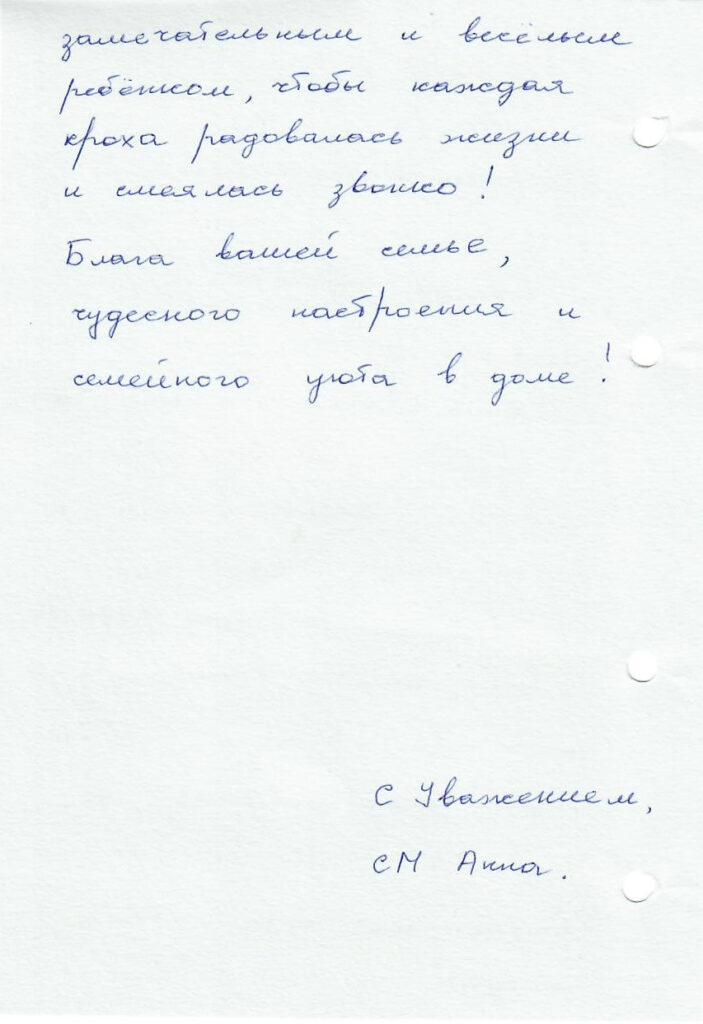 замечательным и весёлым
ребёнком, чтобы каждая
кроха радовалась жизни
и смеялась звонко!
Блага вашей семье,
чудесного настроения и
семейного уюта в доме!
С Уважением,
СМ Анна.